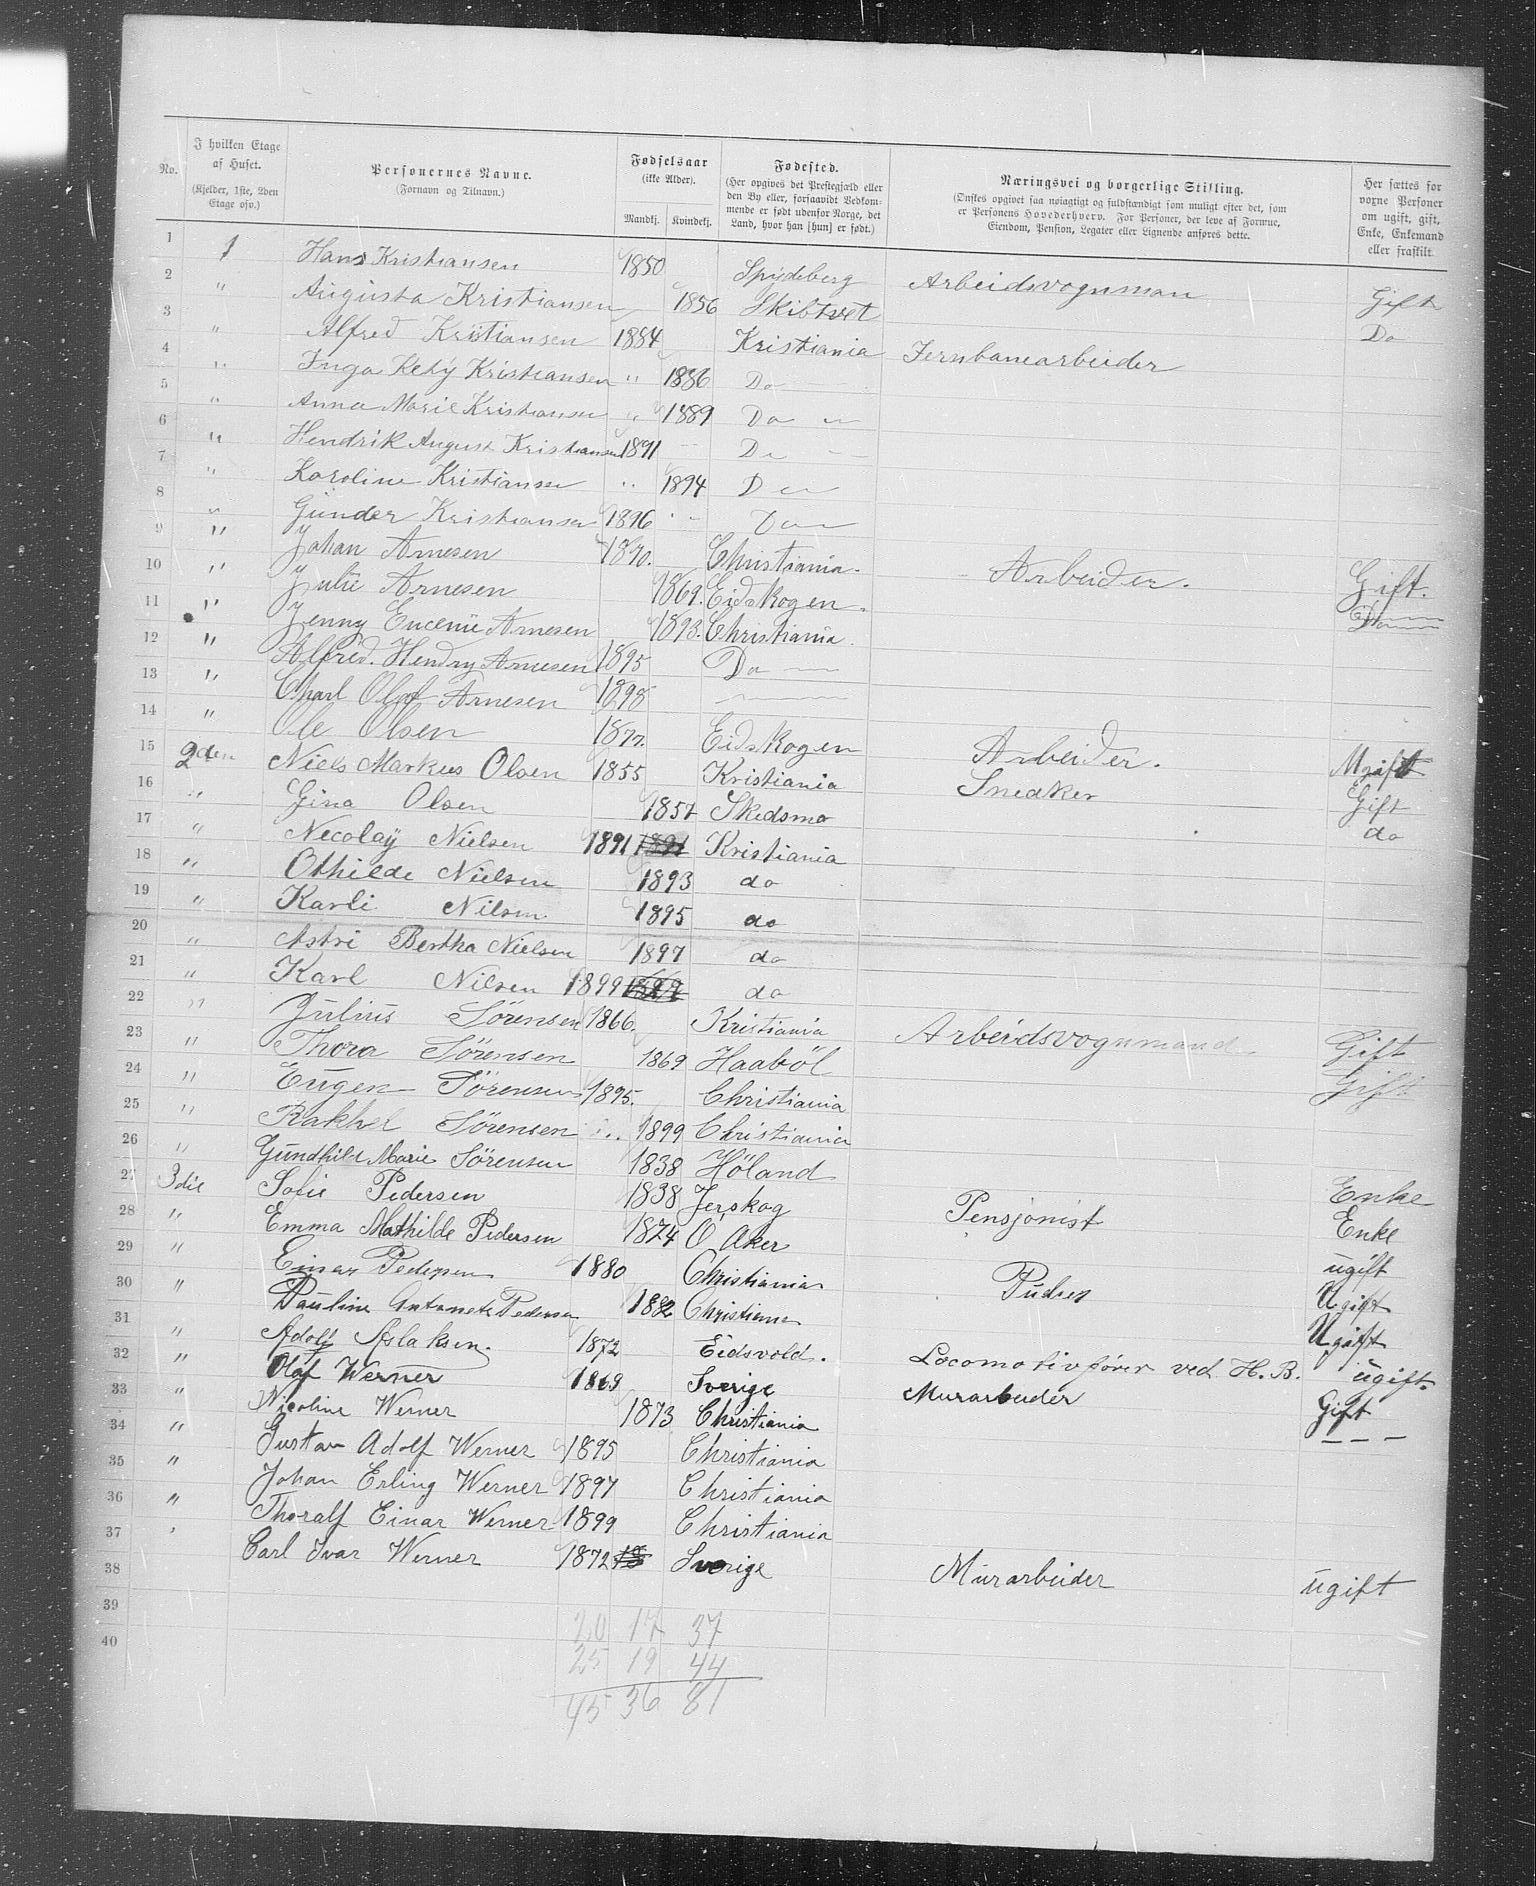 No.
I hvilken Etage af Huset. (Kjelder, 1ste, 2den Etage osv.)
Personernes Navne. (Fornavn og Tilnavn.)
Fødselsaar (ikke Alder). Mandkj. Kvindekj.
Fødested. (Her opgives det Prestegjæld eller den By eller, forsaavidt Vedkommende er født udenfor Norge, det Land, hvor han [hun] er født.)
Næringsvei og borgerlige Stilling. (Ønskes opgivet saa nøiagtigt og fuldstændigt som muligt efter det, som er Personens Hovederhverv. For Personer, der leve af Formue, Eiendom, Pension, Legater eller Lignende anføres dette.)
Her sættes for voxne Personer om ugift, gift, Enke, Enkemand eller fraskilt.
1 1 Hans Kristiansen 1850 Spydeberg Arbeidsvognman Gift
2 " Augusta Kristiansen 1856 Skibtvet Do
3 " Alfred Kristiansen 1884 Kristiania Jernbanearbeider
4 " Inga Kety Kristiansen " 1886 Do
5 " Anna Marie Kristiansen " 1889 Do "
6 " Hendrik August Kristiansen 1891 Do
7 " Karoline Kristiansen " 1894 D
8 " Gunder Kristiansen 1896 Do
9 " Johan Arnesen 1870. Christiania. Arbeider. Gift.
10 " Julie Arnesen 1869. Eidskogen. Do
11 " Jenny Eucenie Arnesen 1893. Christiania.
12 " Alfred. Hendry Arnesen 1895 Do
13 " Charl Olaf Arnesen 1898
14 " Ole Olsen 1877. Eidskogen Arbeider. Ugift
15 2den Niels Markus Olsen 1855 Kristiania Snedker Gift
16 " Gina Olsen 1857 Skedsmo do
17 " Necolay Nielsen 1891 Kristiania
18 " Othilde Nielsen 1893 do
19 " Karli Nilsen 1895 do
20 " Astri Bertha Nielsen 1897 do
21 " Karl Nilsen 1899 do
22 " Julius Sörensen 1866. Kristiania Arbeidsvognmand Gift
23 " Thora Sörensen 1869 Haaböl Gift
24 " Eugen Sörensen 1895. Christiania
25 " Rakhel Sörensen " 1899 Christiania
26 " Gundhild Marie Sörensen 1838 Höland Enke
27 3die Sofie Pedersen 1838 Jerskog Pensjonist Enke
28 " Emma Mathilde Pedersen 1874 Ö. Aker ugift
29 " Einar Pedersen 1880 Christiania Pudser Ugift
30 " Pauline Antonete Pedersen 1882 Christiania Ugift
31 " Adolf Aslaksen. 1872 Eidsvold. Locomotivfører ved H. B. ugift.
32 " Olaf Werner 1869 Sverige Murarbeider Gift
33 " Nicoline Werner 1873 Christiania - - -
34 " Gustav Adolf Werner 1895 Christiania
35 " Johan Erling Werner 1897 Christiania
36 " Thoralf Einar Werner 1899 Christiania
37 ' Carl Ivar Werner 1872 Sverige Murarbeider ugift
38
39
40
20 17 37
25 19 44
45 36 81